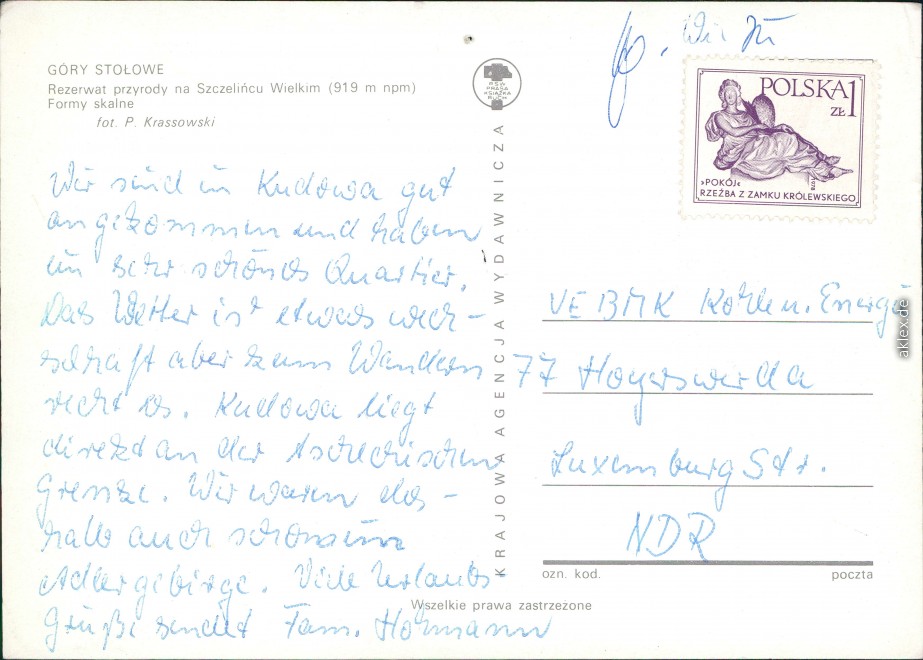 GÓRY STOŁOWE
Rezerwat przyrody na Szczelińcu Wielkim (919 m npm)
Formy skalne
fot. P. Krassowski
Wir sind in Kudowa gut
angekommen und haben
ein sehr schönes Quartier.
Das Wetter ist etwas wech-
selhaft aber zum Wandern
recht es. Kudowa liegt
direkt an der tschechischen
Grenze. Wir waren des-
halb auch schon im
Adlergebirge. Viele Urlaubs-
Grüße sendet Fam. Hohmann
RSW
PRASA
KSIĄŻKA
RUCH
KRAJOWA AGENCJA WYDAWNICZA
POLSKA 1
ZŁ
»POKÓJ«
RZEŹBA Z ZAMKU KRÓLEWSKIEGO
VE BMK Kohle u. Energie
77 Hoyerswerda
Luxemburg Str.
NDR
ozn. kod. poczta
Wszelkie prawa zastrzeżone
aklex.de